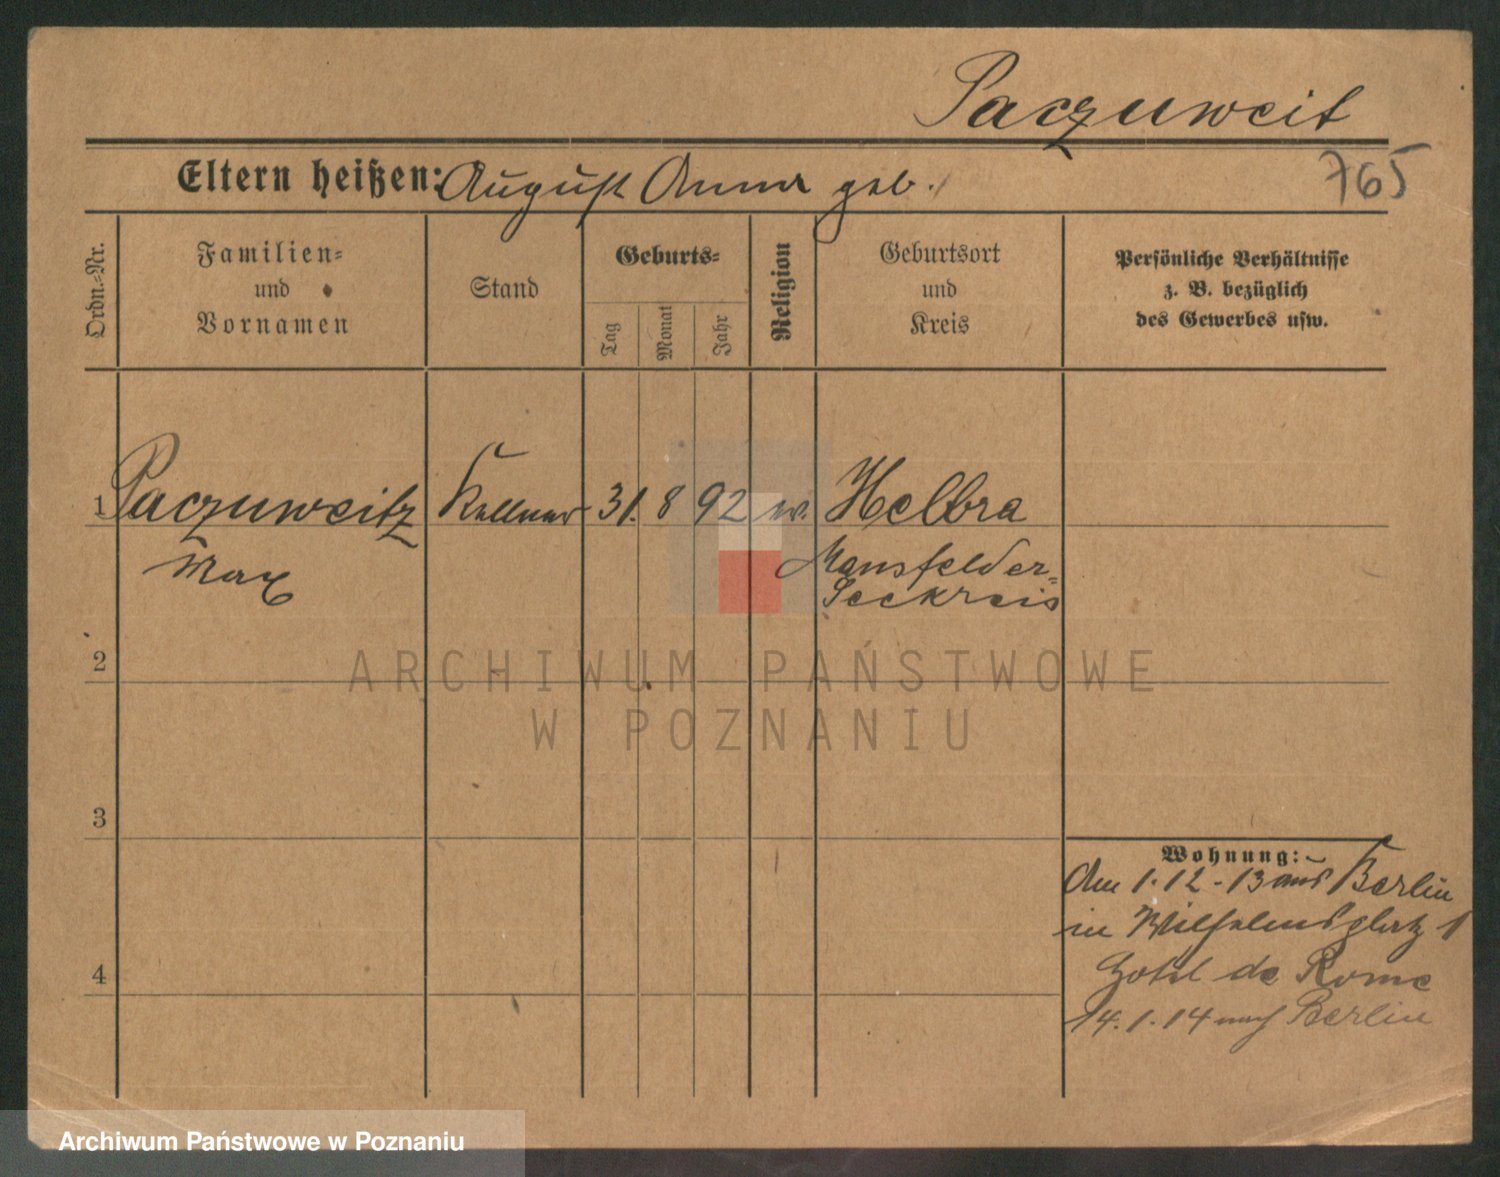 Paczuweit
Eltern heißen: August Anna geb.
765
Ordn.-Nr.
Familien-
und
Vornamen
Stand
Geburts-
Tag
Monat
Jahr
Religion
Geburtsort
und
Kreis
Persönliche Verhältnisse
z. B. bezüglich
des Gewerbes usw.
1 Paczuweitz Kellner 31. 8 92 Helbra
Max Mansfelder-
Seekreis
2
ARCHIWUM PAŃSTWOWE
W POZNANIU
3
Wohnung:
Am 1.12-13 aus Berlin
in Wilhelmsplatz 1
Hotel de Rome
4
14.1.14 nach Berlin
Archiwum Państwowe w Poznaniu